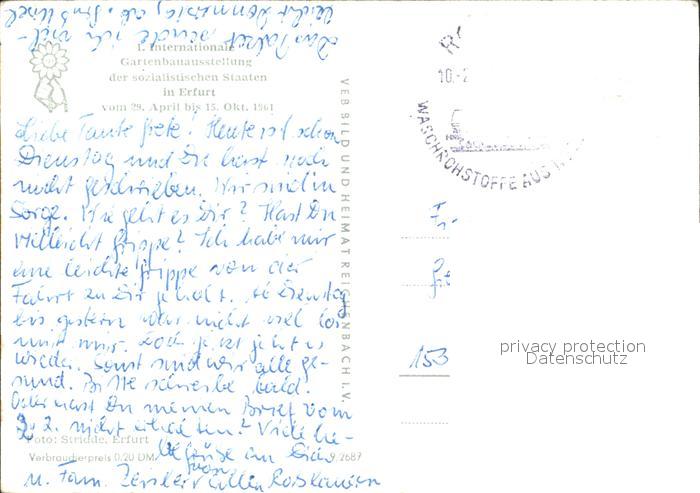 Das Paket sende ich viel-
leicht Donnerstag ab. Gruß
1. Internationale
Gartenbauausstellung
der sozialistischen Staaten
in Erfurt
vom 29. April bis 15. Okt. 1961
Liebe Tante Grete! Heute ist schon
Dienstag und Du hast noch
nicht geschrieben. Wir sind in
Sorge. Wie geht es Dir? Hast Du
vielleicht Grippe? Ich habe mir
eine leichte Grippe von der
Fahrt zu Dir geholt. Ab Dienstag
bis gestern war nicht viel los
mit mir. Doch jetzt geht es
wieder. Sonst sind wir alle ge-
sund. Bitte schreibe bald.
Oder hast Du meinen Brief vom
2. 2. nicht erhalten? Viele lie-
be Grüße an Dich
von
u. Fam.
Foto: Stridde, Erfurt
Verbraucherpreis 0,20 DM
9,2687
VEB BILD UND HEIMAT REICHENBACH I. V.
10.-2
WASCHROHSTOFFE AUS
153
privacy protection
Datenschutz